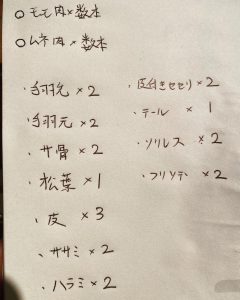 ○モモ肉×数本
○ムネ肉×数本
・手羽先×2
・手羽元×2
・サ骨×2
・松葉×1
・皮×3
・ササミ×2
・ハラミ×2
・皮付きセセリ×2
・テール×1
・ソリレス×2
・フリソデ×2